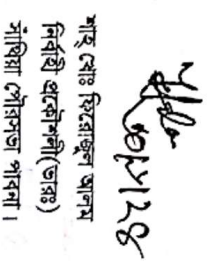 শাহ্ মোঃ ফিরোজুল আলম
নির্বাহী প্রকৌশলী(ভারঃ)
সাঁথিয়া পৌরসভা পাবনা।